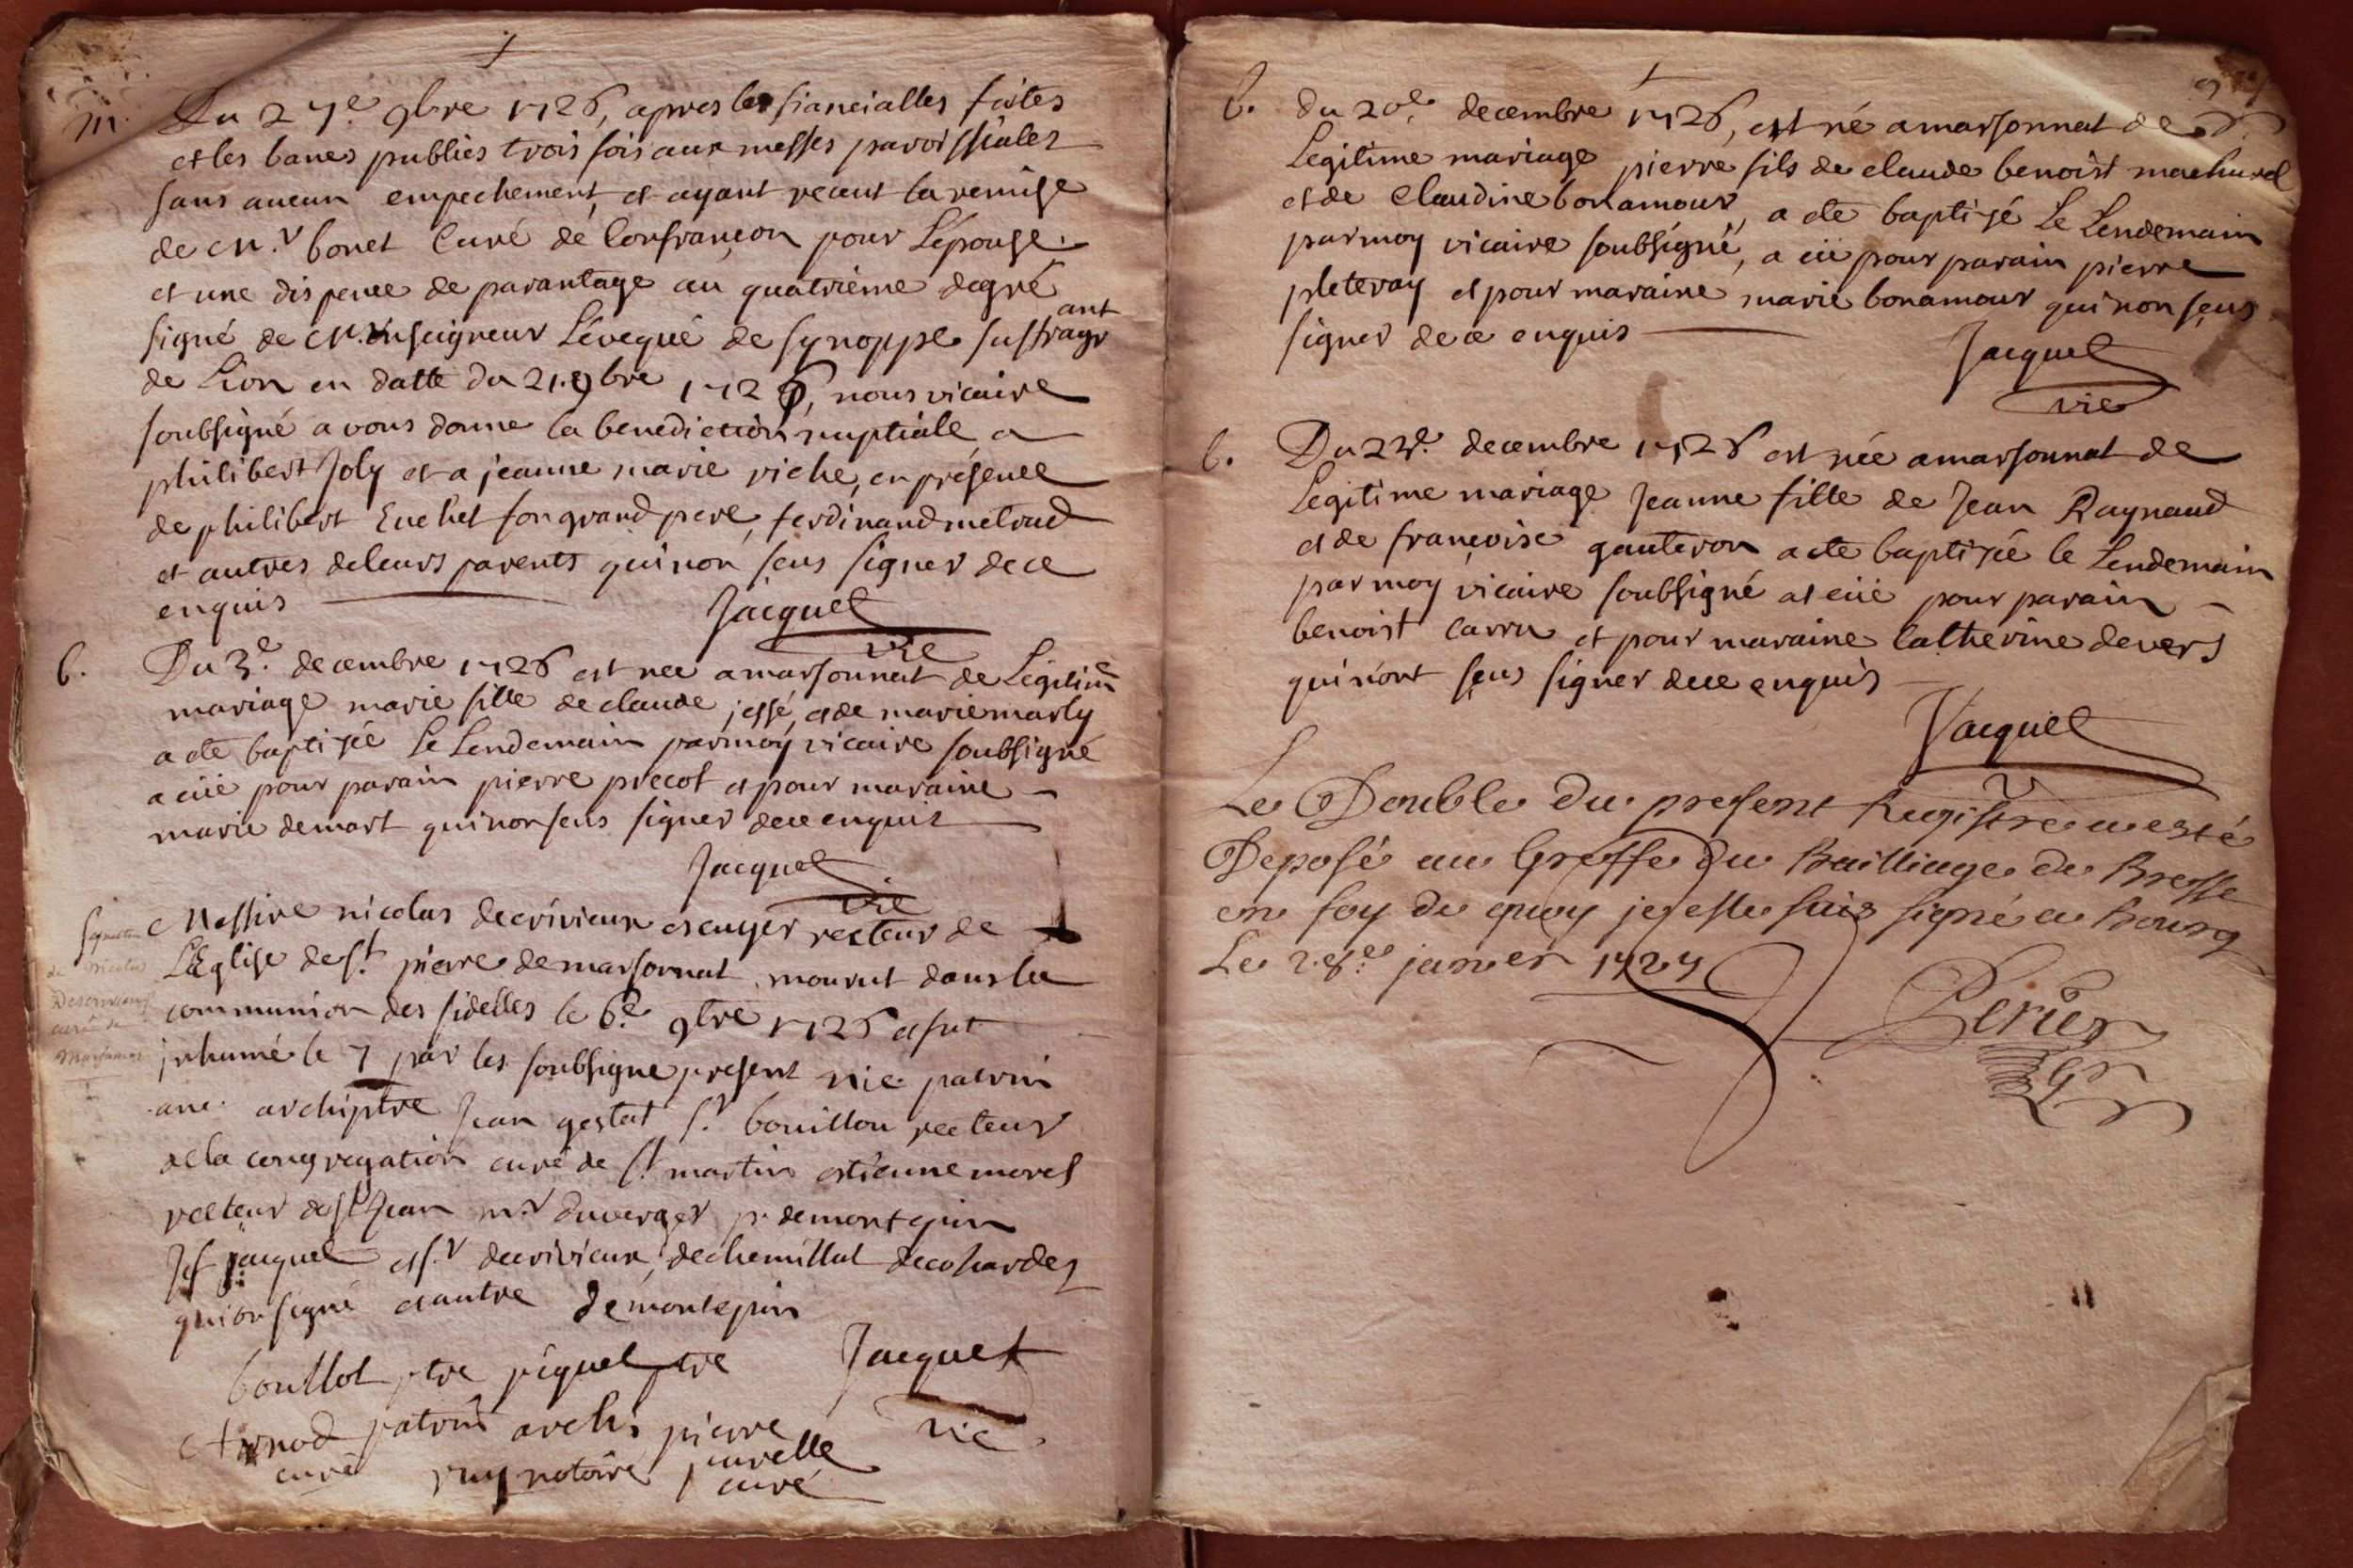 m. Du 27e 9bre 1726, apres les fiancialles faites
et les bancs publiés trois fois aux messes paroissiales
sans aucun empechement, et ayant receut la remise
de Mr bonet Curé de Confrançon pour Lépouse.
et une dispence de parantage au quatrieme degré
signé de Monseigneur Lévequé de Synoppe suffragant
de Lion en datte du 21. 9bre 1726, nous vicaire
soubsigné avons donne la benediction nuptiale a
philibert Joly et a jeanne marie viche, en présence
de philibert Euchet son grand pere, ferdinand metrad
et autres de leurs parents qui non seus signer de ce
enquis
Jacquet
vic
b. Du 3e decembre 1726 est nee a marsonnat de Légitime
mariage marie fille de claude jessé, et de marie marly
a ete baptisée Le Lendemain par moy vicaire soubsigné
a eüe pour parain pierre precot et pour maraine
marie demart qui non seus signer de ce enquis
Jacquet
vic
Messire nicolas decrivieux escuyer recteur de
L'Eglise de st pierre de marsonnat mourut dans la
communion des fidelles le 6e 9bre 1726 et fut
inhumé le 7 par les soubsigné present nic patrin
anc. archiptre Jean gestat sr bouillon recteur
de la congregation curé de st martin estienne morel
recteur de st Jean mr duverger pr de montepin
Jsf jacquet et sr decrivieux, dechemillat decohardes
qui on signé et autre de montepin
bouillot ptre piquet ptre Jacquet
vic
curé
patrin archi pierre
notaire purelle
curé
b. du 20e decembre 1726, est né a marsonnat de
Legitime mariage pierre fils de claude benoist machurel
et de Claudine bonamour, a ete baptisé Le Lendemain
par moy vicaire soubsigné, a eü pour parain pierre
pleteray et pour maraine marie bonamour qui non seus
signer de ce enquis
Jacquet
vic
b. Du 23e decembre 1726 est née a marsonnat de
Legitime mariage Jeanne fille de Jean Raynaud
et de françoise gauteron a ete baptisée le Lendemain
par moy vicaire soubsigné at eüe pour parain
benoist carru et pour maraine Catherine devers
qui n'ont seus signer de ce enquis
Jacquet
V
Le Double du present Registre a esté
Deposé au Greffe du Bailliage de Bresse
en foy de quoy je me suis signé a Bourg
Le 28e janvier 1727
Perier